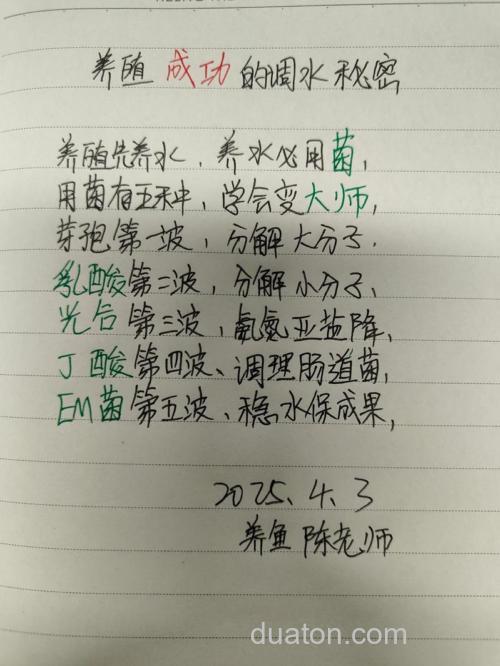 养殖成功的调水秘密
养殖先养水，养水必用菌，
用菌有五种，学会变大师，
芽孢第一波，分解大分子.
乳酸第二波，分解小分子、
光合第三波，氨氮亚盐降，
丁酸第四波、调理肠道菌，
EM菌第五波、稳水保成果，
2025.4.3
养鱼陈老师
duaton.com